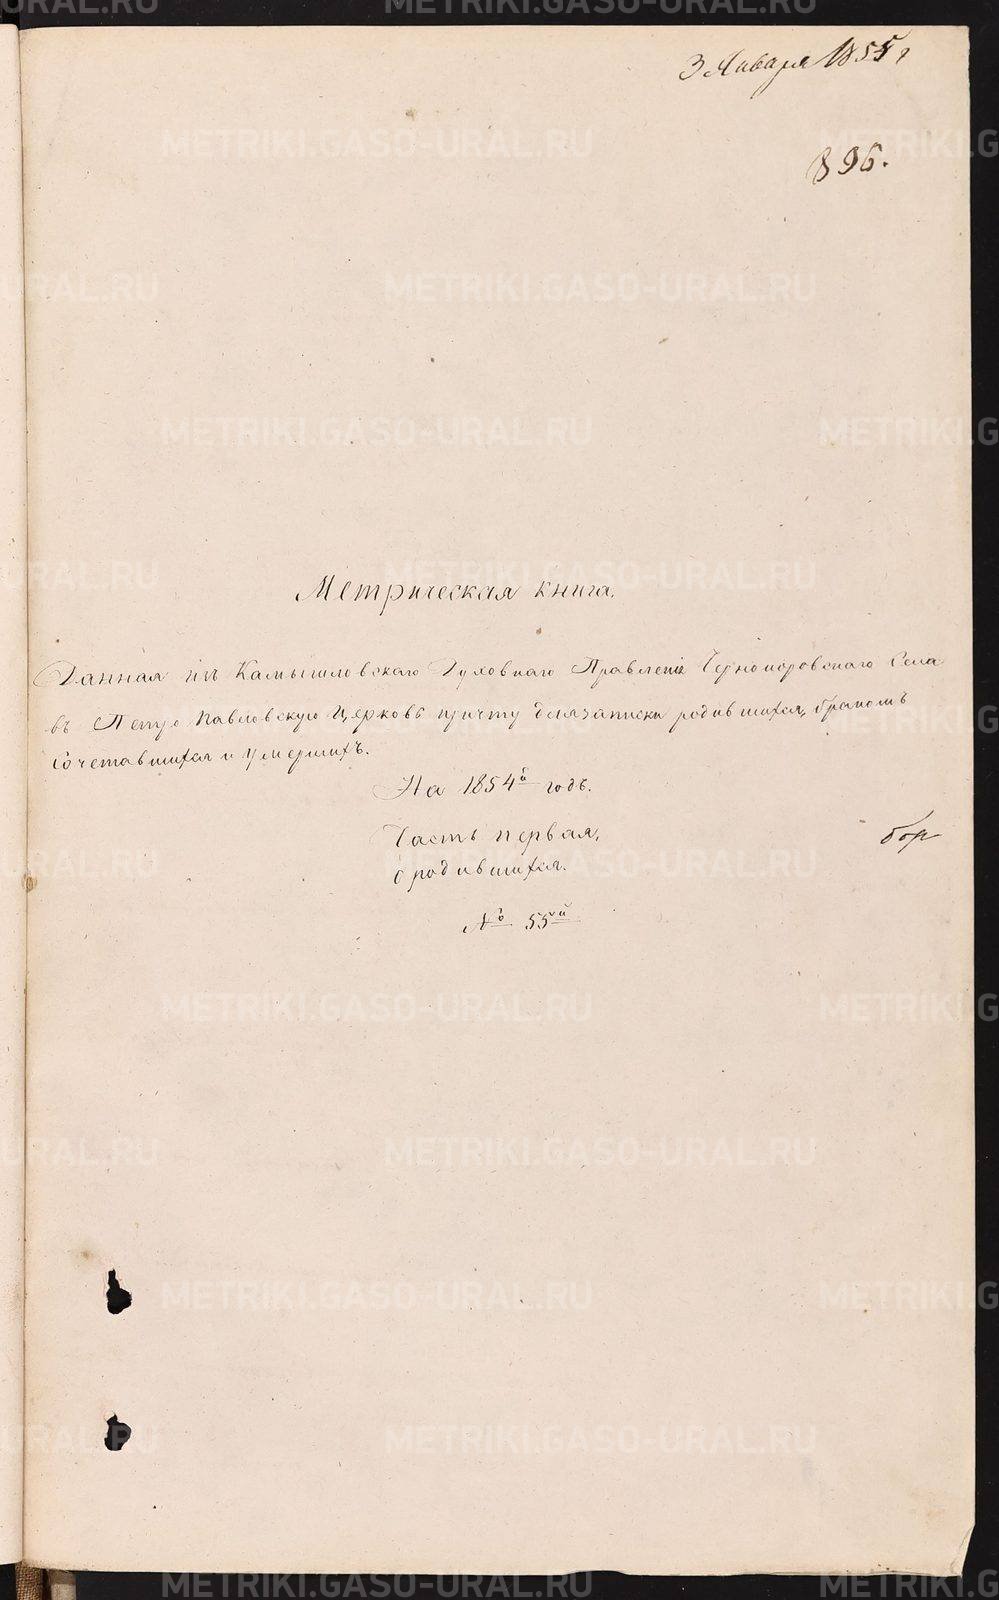 3 Января 1855 г
896.
Метрическая книга.
Данная изъ Камышловскаго Духовнаго Правленія Чернокоровскаго Села
въ Петро Павловскую Церковь причту для записки родившихся, бракомъ
сочетавшихся и умершихъ.
На 1854й годъ.
Часть первая,
о родившихся.
№ 55й
METRIKI.GASO-URAL.RU